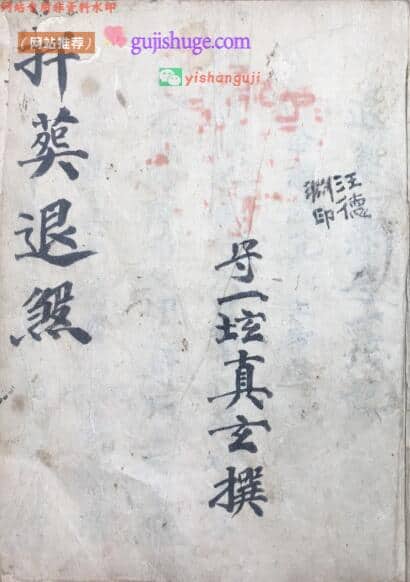 网站专用非资料水印
(网站推荐)
gujishuge.com
yishanguji
汪德
渊印
守一坛真玄撰
退煞